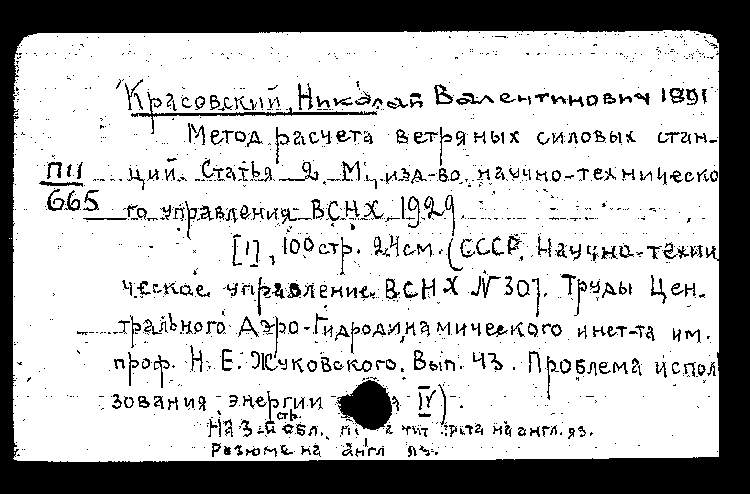 Красовский, Николай Валентинович 1891
Метод расчета ветряных силовых стан-
П11
665
ций. Статья 2. М., изд-во научно-техническо
го управления ВСНХ, 1929
[1], 100 стр. 24 см. (СССР. Научно-техни
ческое управление ВСНХ № 307. Труды Цен-
трального Аэро-Гидродинамического инст-та им.
проф. Н. Е. Жуковского. Вып. 43. Проблема исполь
зования энергии IV).
На 3-й стр. обл. тит на англ. яз.
Резюме на англ яз.